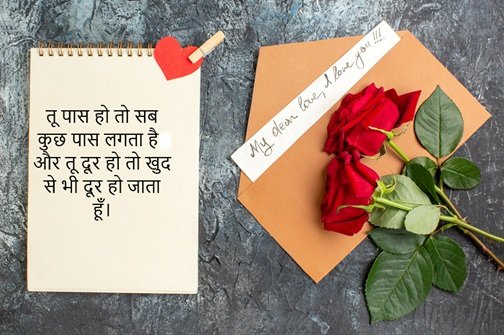 तू पास हो तो सब
कुछ पास लगता है
और तू दूर हो तो खुद
से भी दूर हो जाता
हूँ।
My dear love, I love you!!!